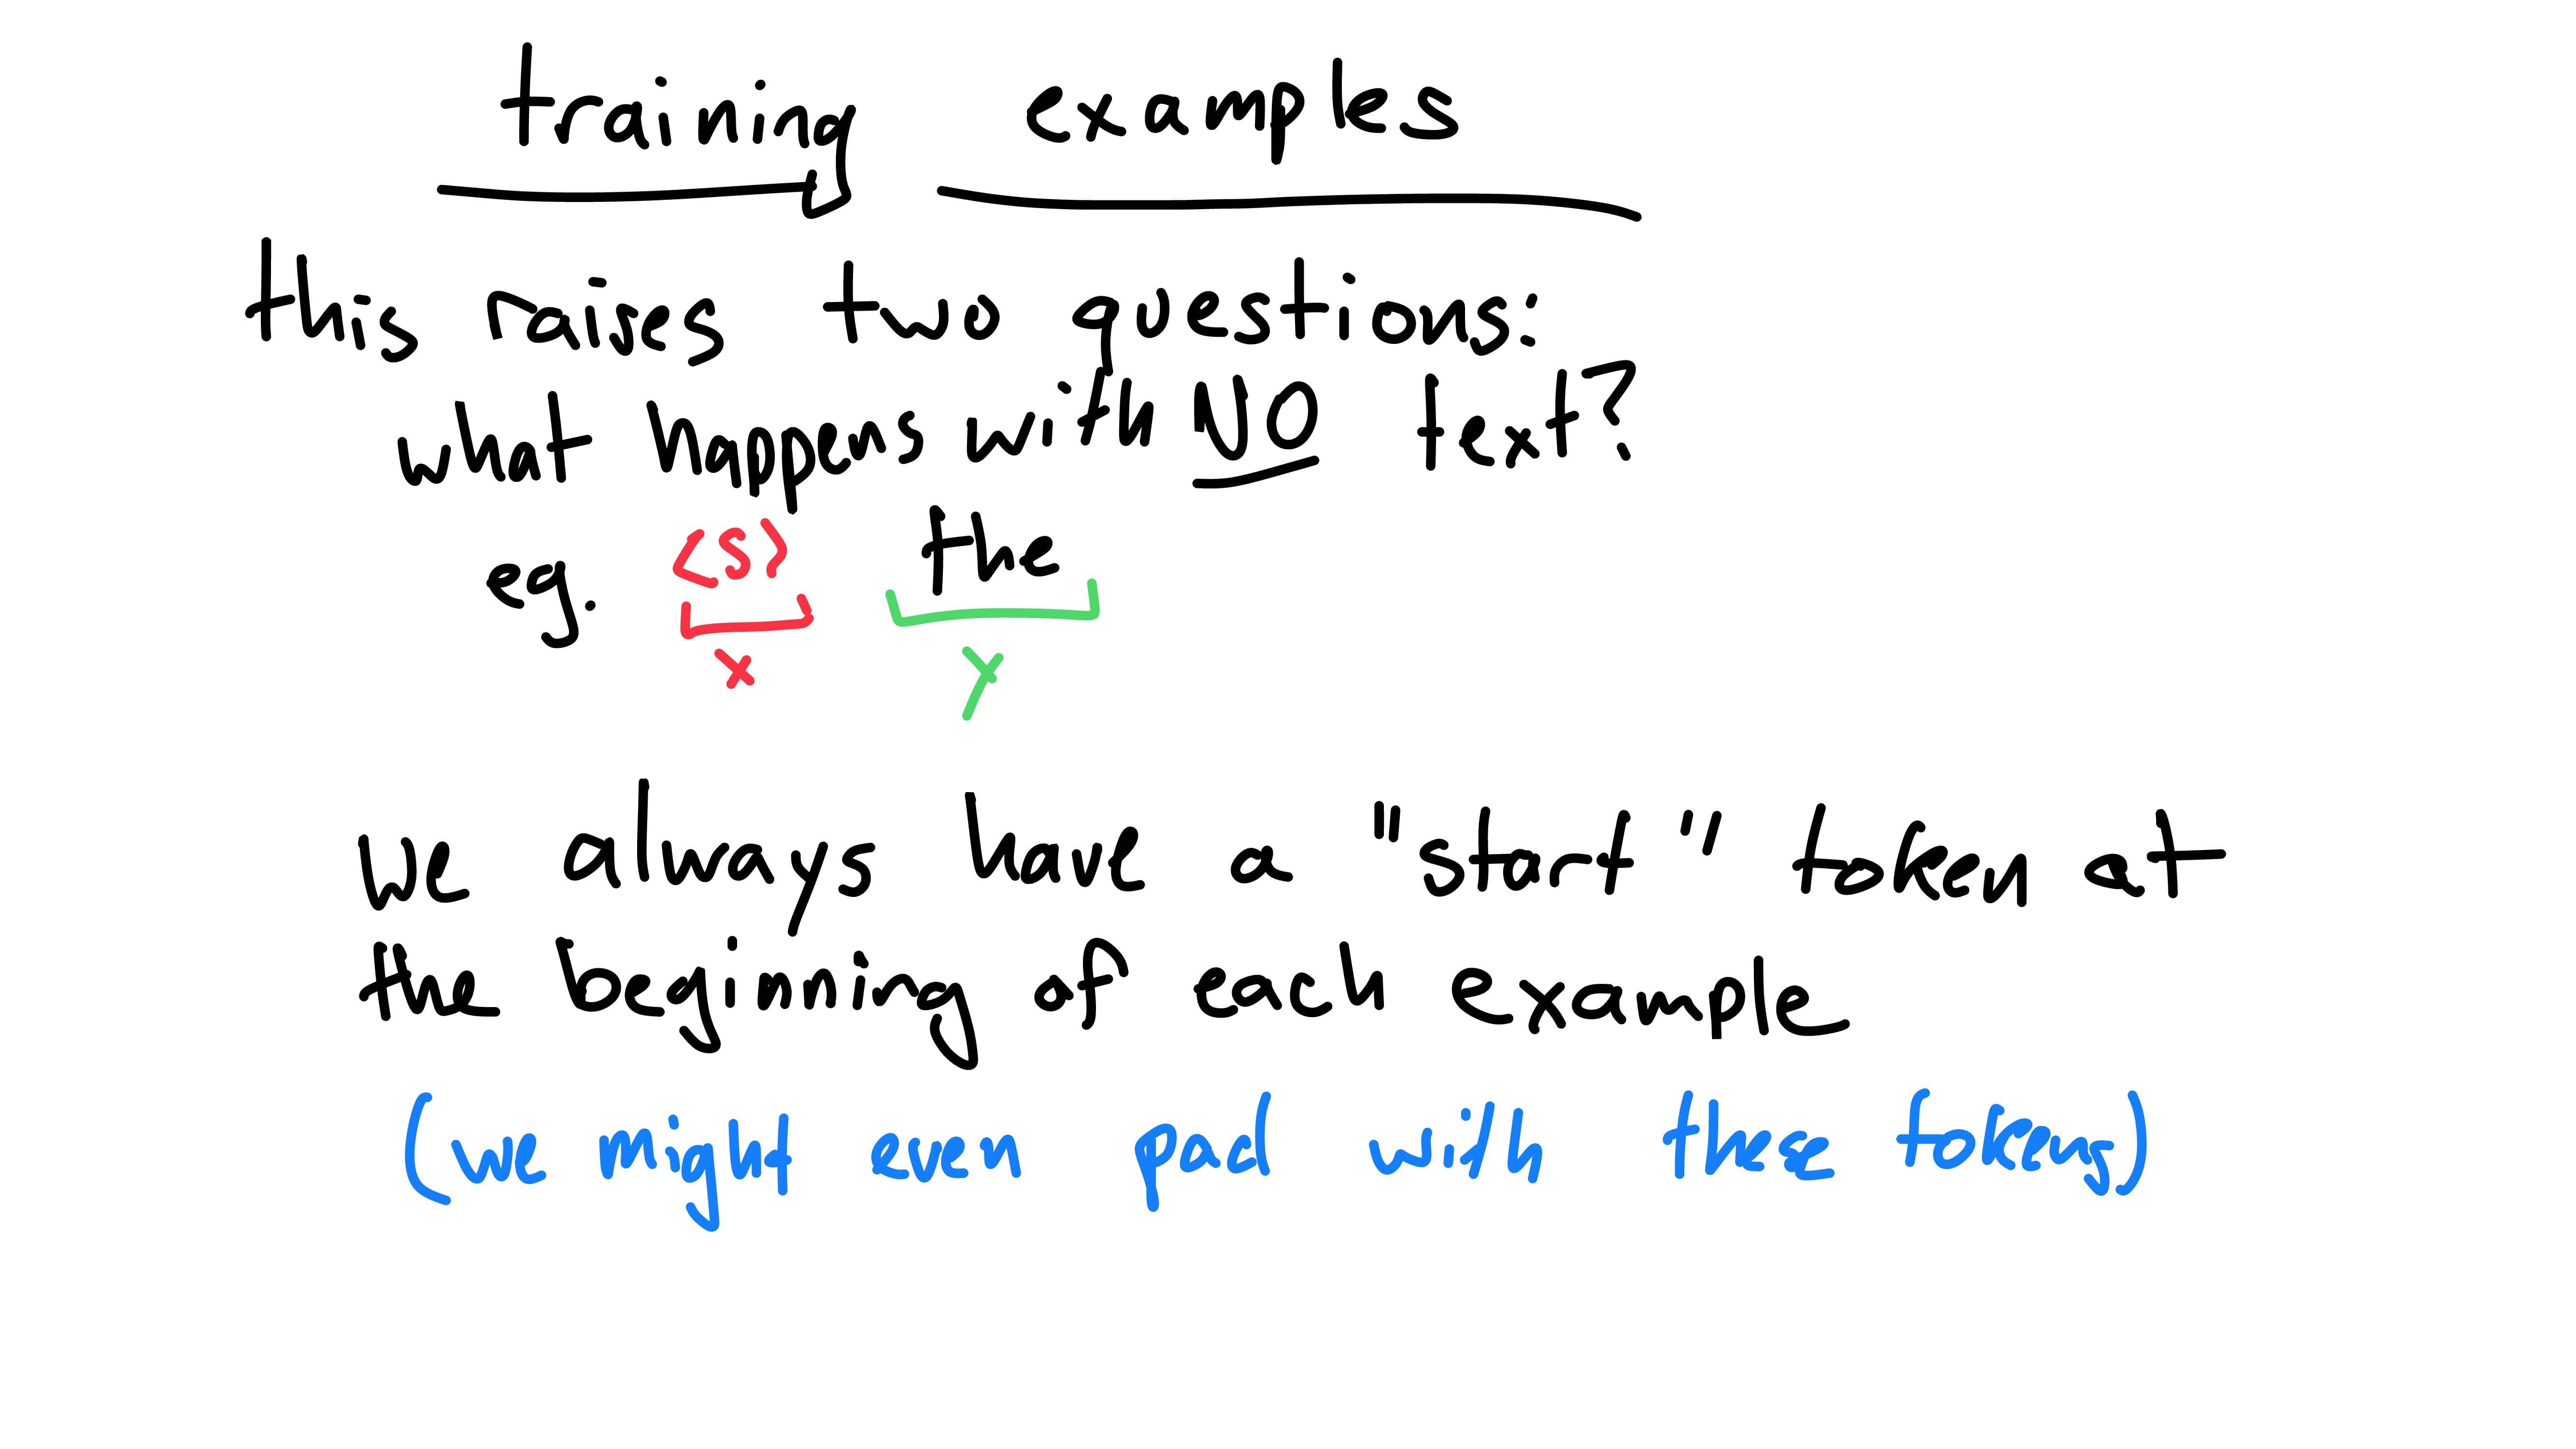 training examples
this raises two questions:
what happens with NO text?
eg. <s> the
x y
we always have a "start" token at
the beginning of each example
(we might even pad with these tokens)